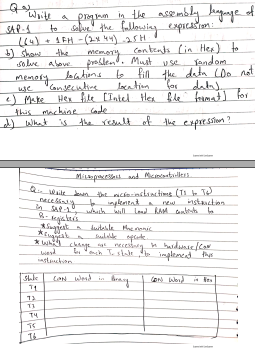 Q a)
Write a program in the assembly language of
SAP-1 to solve the following expression:
(64) + 1FH - (2x44) - 25H
b) Show the memory contents (in Hex) to
solve above problem. Must use random
memory locations to fill the data (Do not
use consecutive location for data)
c) Make Hex file [Intel Hex file format] for
this machine code
d) What is the result of the expression?
Microprocessors and Microcontrollers
Q:- Write down the micro-instructions (T1 to T6)
necessary to implement a new instruction
in SAP-1, which will load RAM contents to
B-registers
* Suggest a suitable Mnemonic
* Suggest a suitable opcode
* What change are necessary in hardware/CON
word for each T-state to implement this
instruction
State CON Word in Binary CON Word in Hex
T1
T2
T3
T4
T5
T6